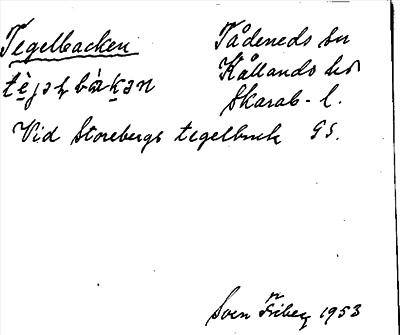 Tegelbacken
Tådeneds sn
Kållands hd
Skarab. l.
Vid Storebergs tegelbruk GS.
Sven Friberg 1953